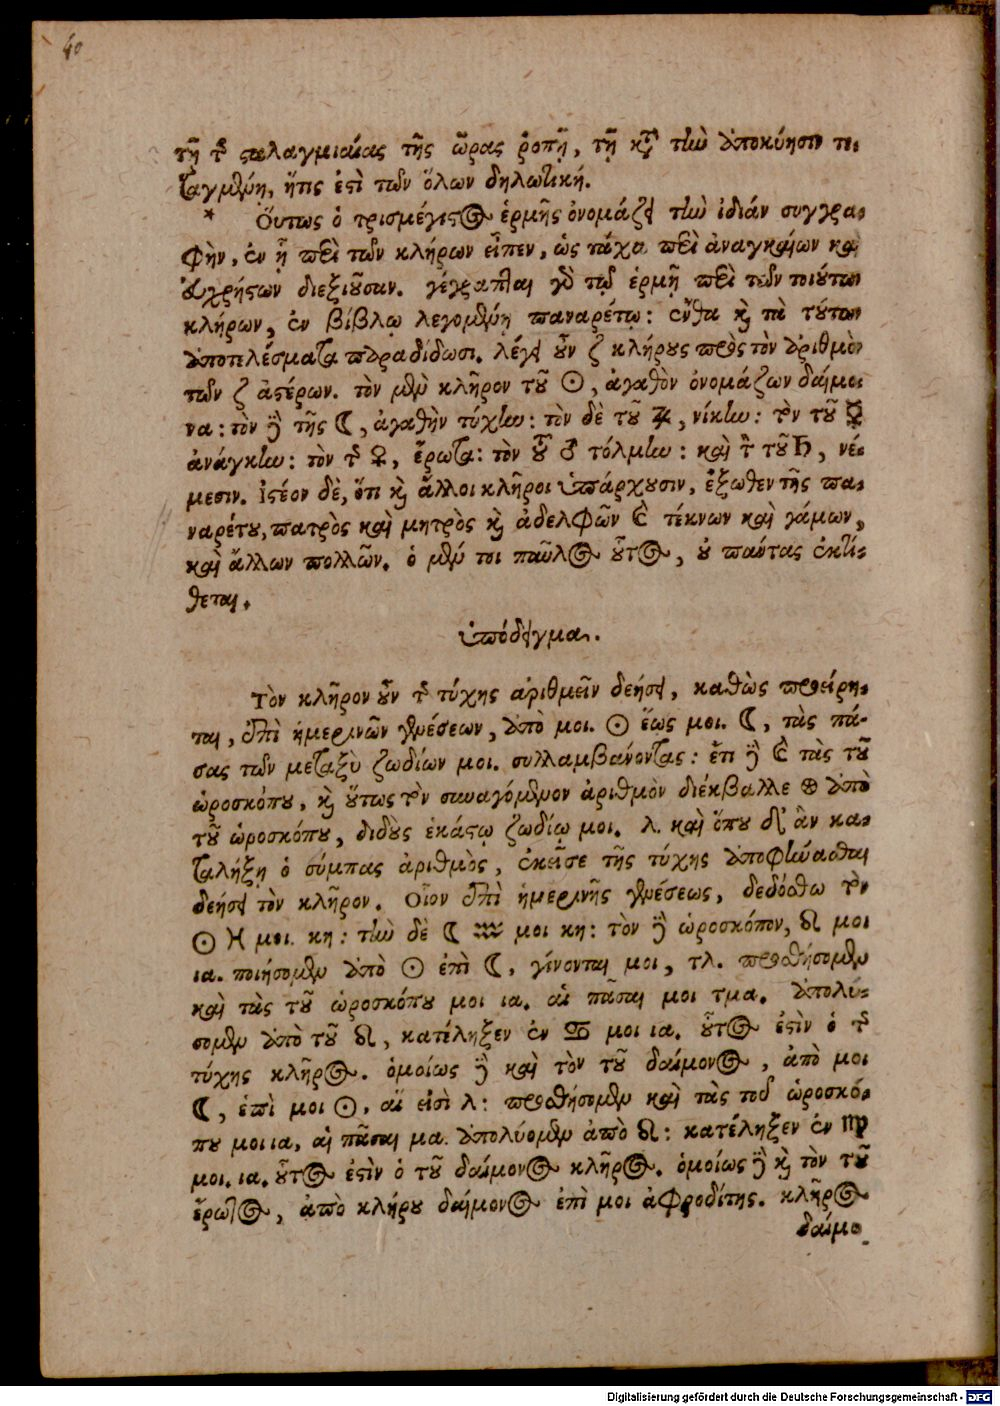 40
τῇ τῆς σταλαγμιαίας τῆς ὥρας ῥοπῇ, τῇ κατὰ τὴν ἀποκύησιν τε-
ταγμένῃ, ἥτις ἐστὶ τῶν ὅλων δηλωτική.
* Οὕτως ὁ τρισμέγιστος ἑρμῆς ὀνομάζει τὴν ἰδιάν συγγρα-
φὴν, ἐν ᾗ περὶ τῶν κλήρων εἶπεν, ὡς τάχα περὶ ἀναγκαίων καὶ
εὐχρήστων διεξιοῦσαν. γέγραπται γὰρ τῷ ἑρμῇ περὶ τῶν τοιούτων
κλήρων, ἐν βίβλῳ λεγομένῃ παναρέτῳ: ἔνθα καὶ τὰ τούτων
ἀποτελέσματα παραδίδωσι. λέγει οὖν ζ κλήρους πρὸς τὸν ἀριθμὸν
τῶν ζ ἀστέρων. τὸν μὲν κλῆρον τοῦ ☉, ἀγαθὸν ὀνομάζων δαίμο-
να: τὸν δὲ τῆς ☾, ἀγαθὴν τύχην: τὸν δὲ τοῦ ♃, νίκην: τὸν τοῦ ☿
ἀνάγκην: τὸν τῆς ♀, ἔρωτα: τὸν τοῦ ♂ τόλμην: καὶ τὸν τοῦ ♄, νέ-
μεσιν. Ἰστέον δὲ, ὅτι καὶ ἄλλοι κλῆροι ὑπάρχουσιν, ἔξωθεν τῆς πα-
ναρέτου, πατρὸς καὶ μητρὸς καὶ ἀδελφῶν καὶ τέκνων καὶ γάμων,
καὶ ἄλλων πολλῶν. ὁ μέν τοι παῦλος οὗτος, οὐ πάντας ἐκτί-
θεται.
ὑπόδειγμα.
Τὸν κλῆρον οὖν τῆς τύχης ἀριθμεῖν δεήσει, καθὼς προείρη-
ται, ἐπὶ ἡμερινῶν γενέσεων, ἀπὸ μοι. ☉ ἕως μοι. ☾, τὰς πά-
σας τῶν μεταξὺ ζωδίων μοι. συλλαμβάνοντας: ἔτι δὲ καὶ τὰς τοῦ
ὡροσκόπου, καὶ οὕτως τὸν συναγόμενον ἀριθμὸν διέκβαλλε ⊕ ἀπὸ
τοῦ ὡροσκόπου, διδοὺς ἑκάστῳ ζωδίῳ μοι. λ. καὶ ὅπου δ' ἂν κα-
ταλήξῃ ὁ σύμπας ἀριθμὸς, ἐκεῖσε τῆς τύχης ἀποφήνασθαι
δεήσει τὸν κλῆρον. Οἷον ἐπὶ ἡμερινῆς γενέσεως, δεδόσθω τὸν
☉ ♓ μοι. κη: τὴν δὲ ☾ ♒ μοι κη: τὸν δὲ ὡροσκόπον, ♌ μοι
ια. ποιήσομεν ἀπὸ ☉ ἐπὶ ☾, γίνονται μοι, τλ. προσθήσομεν
καὶ τὰς τοῦ ὡροσκόπου μοι ια. αἱ πᾶσαι μοι τμα. ἀπολύ-
σομεν ἀπὸ τοῦ ♌, κατέληξεν ἐν ♋ μοι ια. οὗτος ἐστὶν ὁ τῆς
τύχης κλῆρος. ὁμοίως δὲ καὶ τὸν τοῦ δαίμονος, ἀπὸ μοι
☾, ἐπὶ μοι ☉, αἵ εἰσὶ λ: προσθήσομεν καὶ τὰς τοῦ ὡροσκό-
που μοι ια, αἱ πᾶσαι μα. ἀπολύομεν ἀπὸ ♌: κατέληξεν ἐν ♍
μοι. ια. οὗτος ἐστὶν ὁ τοῦ δαίμονος κλῆρος. ὁμοίως δὲ καὶ τὸν τοῦ
ἔρωτος, ἀπὸ κλήρου δαίμονος ἐπὶ μοι ἀφροδίτης. κλῆρος
δαίμο-
Digitalisierung gefördert durch die Deutsche Forschungsgemeinschaft - DFG